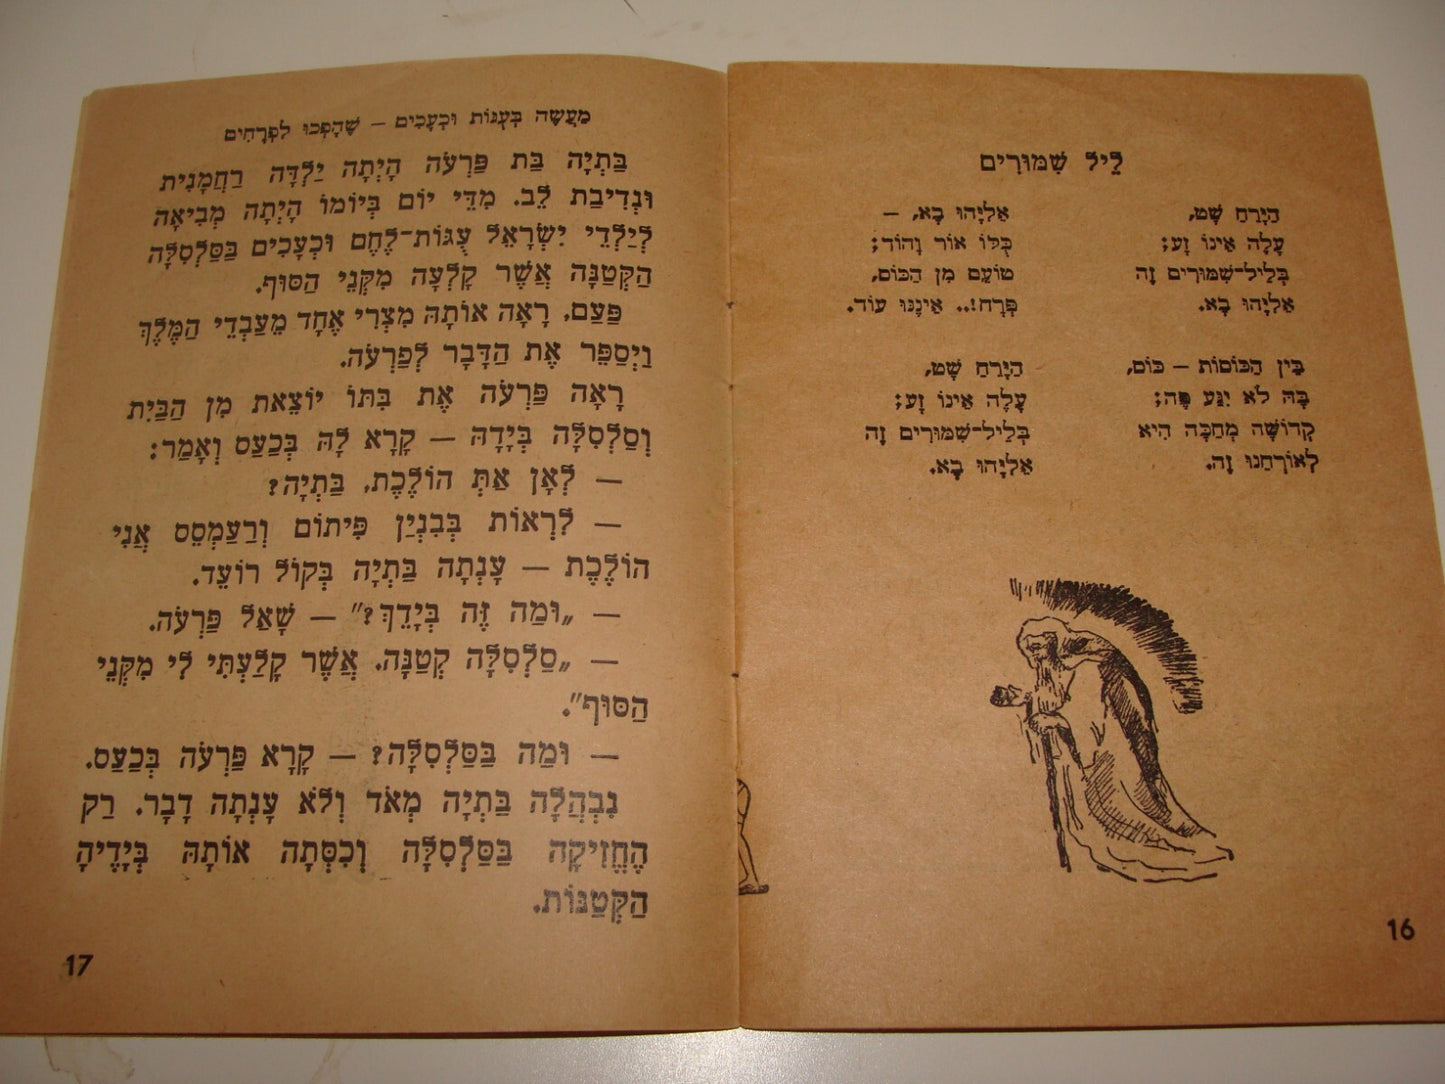 לֵיל שִׁמּוּרִים
הַיָּרֵחַ שָׁט,
עָלֶה אֵינוֹ זָע;
בְּלֵיל־שִׁמּוּרִים זֶה
אֵלִיָּהוּ בָּא.
בֵּין הַכּוֹסוֹת – כּוֹס,
בָּהּ לֹא יִגַּע פֶּה;
קְדוֹשָׁה מְחַכָּה הִיא
לְאוֹרְחֵנוּ זֶה.
אֵלִיָּהוּ בָּא, –
כֻּלּוֹ אוֹר וָהוֹד;
טוֹעֵם מִן הַכּוֹס,
פָּרַח!.. אֵינֶנּוּ עוֹד.
הַיָּרֵחַ שָׁט,
עָלֶה אֵינוֹ זָע;
בְּלֵיל־שִׁמּוּרִים זֶה
אֵלִיָּהוּ בָּא.
16
מַעֲשֶׂה בְּעֻגּוֹת וּכְעָכִים – שֶׁהָפְכוּ לִפְרָחִים
בַּתְיָה בַּת פַּרְעֹה הָיְתָה יַלְדָּה רַחֲמָנִית
וּנְדִיבַת לֵב. מִדֵּי יוֹם בְּיוֹמוֹ הָיְתָה מְבִיאָה
לְיַלְדֵי יִשְׂרָאֵל עֻגּוֹת־לֶחֶם וּכְעָכִים בַּסַּלְסִלָּה
הַקְּטַנָּה אֲשֶׁר קָלְעָה מִקְּנֵי הַסּוּף.
פַּעַם, רָאָה אוֹתָהּ מִצְרִי אֶחָד מֵעַבְדֵי הַמֶּלֶךְ
וַיְסַפֵּר אֶת הַדָּבָר לְפַרְעֹה.
רָאָה פַּרְעֹה אֶת בִּתּוֹ יוֹצֵאת מִן הַבַּיִת
וְסַלְסִלָּה בְּיָדָהּ – קָרָא לָהּ בְּכַעַס וְאָמַר:
– לְאָן אַתְּ הוֹלֶכֶת, בַּתְיָה?
– לִרְאוֹת בְּבִנְיַן פִּיתוֹם וְרַעַמְסֵס אֲנִי
הוֹלֶכֶת – עָנְתָה בַּתְיָה בְּקוֹל רוֹעֵד.
– „וּמַה זֶּה בְּיָדֵךְ?" – שָׁאַל פַּרְעֹה.
– „סַלְסִלָּה קְטַנָּה. אֲשֶׁר קָלַעְתִּי לִי מִקְּנֵי
הַסּוּף".
– וּמַה בַּסַּלְסִלָּה? – קָרָא פַּרְעֹה בְּכַעַס.
נִבְהֲלָה בַּתְיָה מְאֹד וְלֹא עָנְתָה דָבָר. רַק
הֶחֱזִיקָה בַּסַּלְסִלָּה וְכִסְּתָה אוֹתָהּ בְּיָדֶיהָ
הַקְּטַנּוֹת.
17